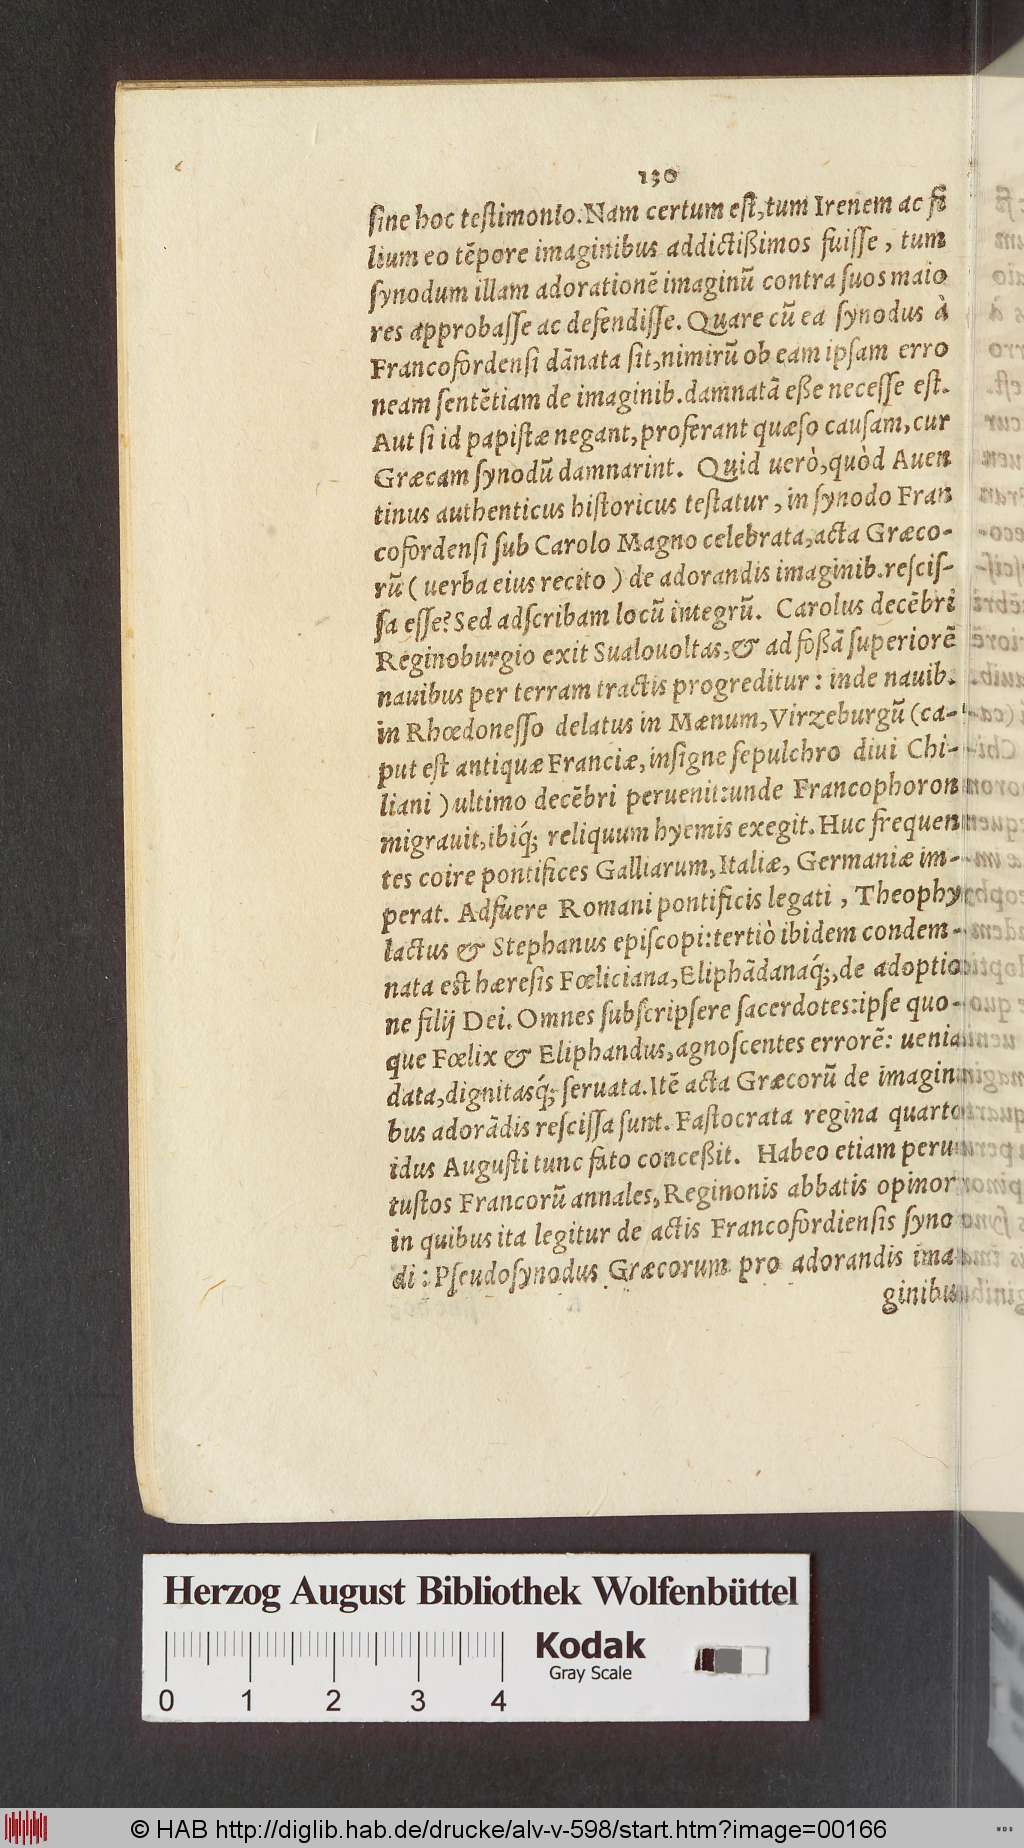 130
sine hoc testimonio. Nam certum est, tum Irenem ac fi
lium eo tẽpore imaginibus addictißimos fuisse, tum
synodum illam adorationẽ imaginũ contra suos maio
res approbasse ac defendisse. Quare cũ ea synodus à
Francofordensi dãnata sit, nimirũ ob eam ipsam erro
neam sentẽtiam de imaginib. damnatã eße necesse est.
Aut si id papistæ negant, proferant quæso causam, cur
Græcam synodũ damnarint. Quid uerò, quòd Auen
tinus authenticus historicus testatur, in synodo Fran
cofordensi sub Carolo Magno celebrata, acta Græco-
rũ ( uerba eius recito ) de adorandis imaginib. rescis-
sa esse? Sed adscribam locũ integrũ. Carolus decẽbri
Reginoburgio exit Sualouoltas, & ad foßã superiorẽ
nauibus per terram tractis progreditur: inde nauib.
in Rhœdonesso delatus in Mænum, Virzeburgũ (ca-
put est antiquæ Franciæ, insigne sepulchro diui Chi-
liani ) ultimo decẽbri peruenit: unde Francophoron
migrauit, ibiq́; reliquum hyemis exegit. Huc frequen
tes coire pontifices Galliarum, Italiæ, Germaniæ im-
perat. Adfuere Romani pontificis legati, Theophy
lactus & Stephanus episcopi: tertiò ibidem condem-
nata est hæresis Fœliciana, Eliphãdanaq́;, de adoptio
ne filij Dei. Omnes subscripsere sacerdotes: ipse quo-
que Fœlix & Eliphandus, agnoscentes errorẽ: uenia
data, dignitasq́; seruata. Itẽ acta Græcorũ de imagini
bus adorãdis rescissa sunt. Fastocrata regina quarto
idus Augusti tunc fato conceßit. Habeo etiam peru
tustos Francorũ annales, Reginonis abbatis opinor
in quibus ita legitur de actis Francofordiensis syno
di: Pseudosynodus Græcorum pro adorandis ima
ginibus
Herzog August Bibliothek Wolfenbüttel
Kodak
Gray Scale
0 1 2 3 4
© HAB http://diglib.hab.de/drucke/alv-v-598/start.htm?image=00166